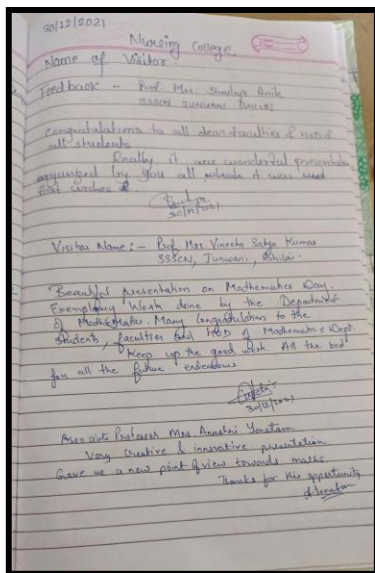 30/12/2021
Nursing College
Name of Visitor.
Feedback - Prof Mrs. Anik
SSSCN JUNWANI BHILAI
Congratulations to all dear faculties & HOD &
all students
Really it was wonderful presentation
organized by you all
Best wishes
30/12/2021
Visitor Name :- Prof Mrs Vineeta Satya Kumar
SSSCN, Junwani, Bhilai.
Beautiful presentation on Mathematics Day.
Exemplary Work done by the Department
of Mathematics. Many Congratulation to the
students, faculties and HOD of Mathematics Dept.
Keep up the good work All the best
for all the future endeavours
30/12/2021
Associate Professor Mrs.
Very creative & innovative presentation
Gave me a new point of view towards maths.
Thanks for this opportunity